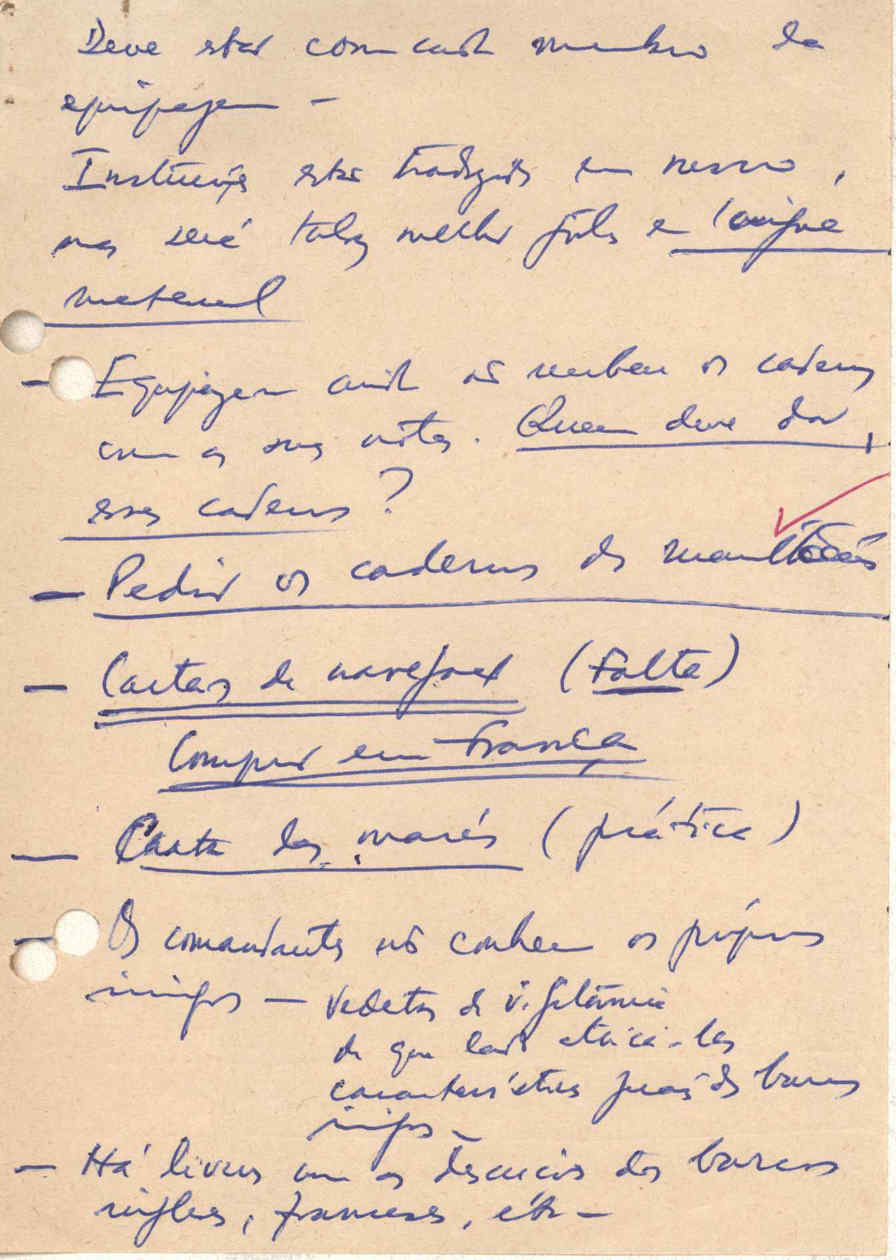 Deve estar com cada membro da
equipagem –
Instruções estão traduzidas em russo,
mas será talvez melhor feitas em língua
material
– Equipagem ainda não recebeu os cadernos
com as suas notas. Quem deve dar
esses cadernos?
– Pedir os cadernos dos
– Cartas de navegação (falta)
Comprar em França
– Carta das marés (prática)
– Os comandantes não conhecem os próprios
inimigos – Vedetas de vigilância
de que lado atacá-las
características gerais dos barcos
inimigos –
– Há livros com as descrições dos barcos
ingleses, franceses, etc –